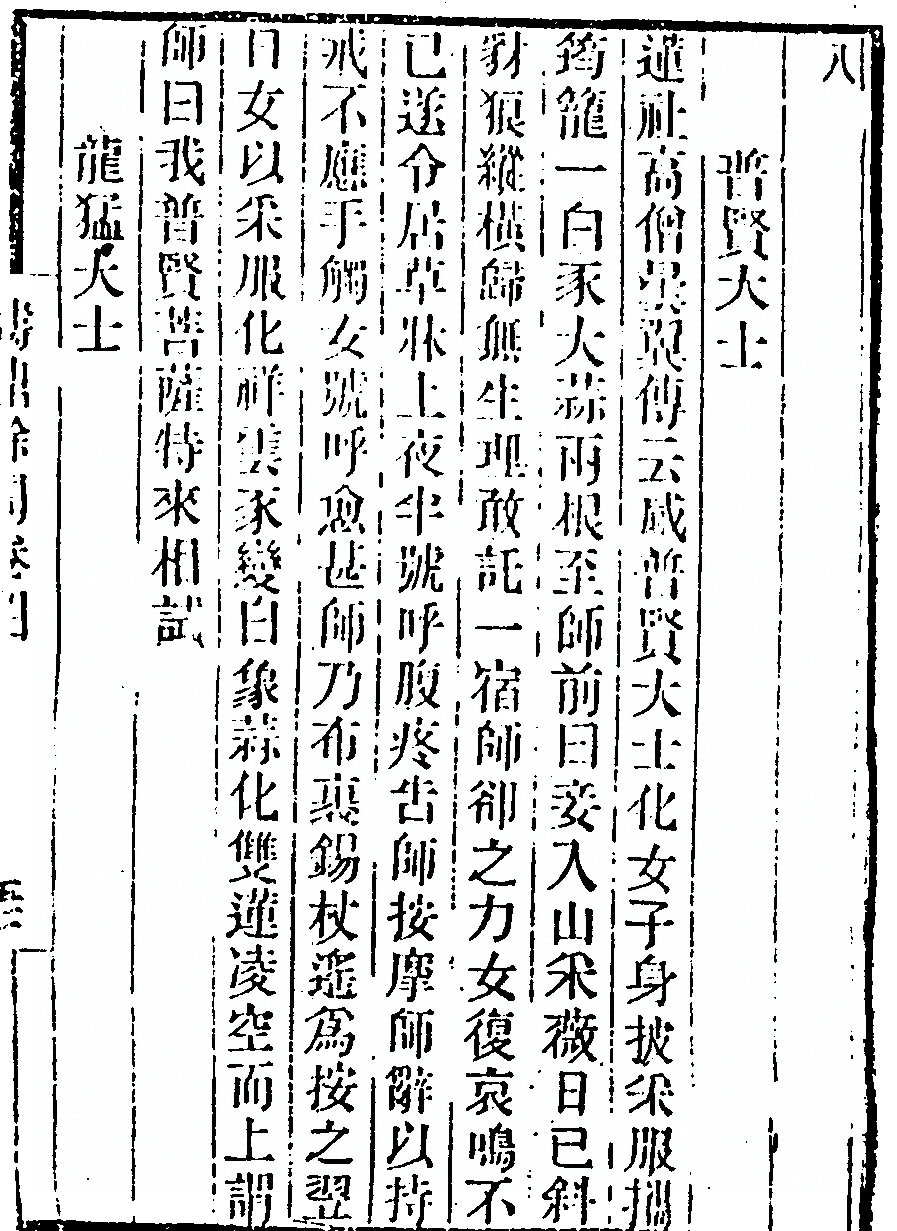 八
普賢大士
蓮社高僧曇翼傳云感普賢大士化女子身披采服攜
筠籠一白豕大蒜兩根至師前曰妾入山采薇日已斜
豺狼縱橫歸無生理敢託一宿師卻之力女復哀鳴不
已遂令居草牀上夜半號呼腹疼告師按摩師辭以持
戒不應手觸女號呼愈甚師乃布裹錫杖遙爲按之翌
日女以采服化祥雲豕變白象蒜化雙蓮凌空而上謂
師曰我普賢菩薩特來相試
龍猛大士